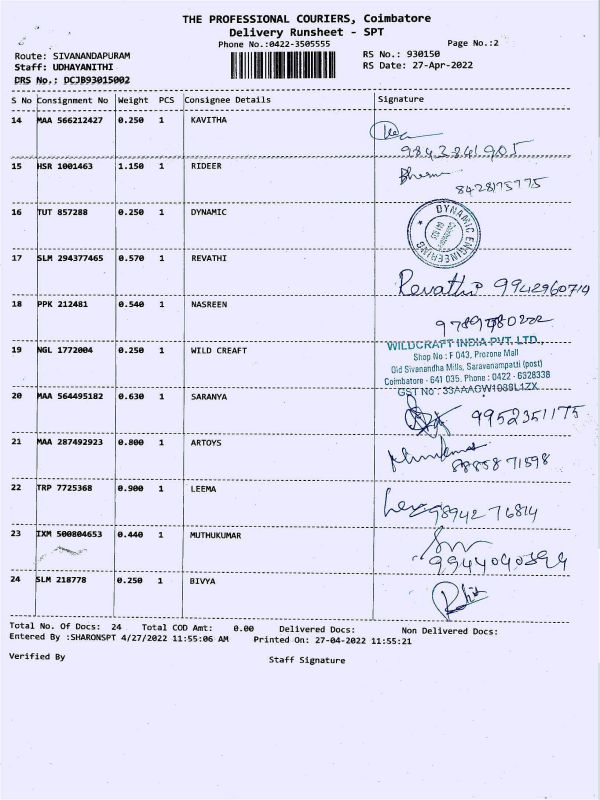 THE PROFESSIONAL COURIERS, Coimbatore
Delivery Runsheet - SPT
Phone No.:0422-3505555
Page No.:2
Route: SIVANANDAPURAM
Staff: UDHAYANITHI
DRS No.: DCJB93015002
RS No.: 930150
RS Date: 27-Apr-2022
S No Consignment No Weight PCS Consignee Details Signature
14 MAA 566212427 0.250 1 KAVITHA
9843841905
15 HSR 1001463 1.150 1 RIDEER
8428175775
16 TUT 857288 0.250 1 DYNAMIC
DYNAMIC ENGINEERING
17 SLM 294377465 0.570 1 REVATHI
Revathi 9942960714
18 PPK 212481 0.540 1 NASREEN
19 NGL 1772004 0.250 1 WILD CREAFT
WILDCRAFT INDIA PVT. LTD.
Shop No : F 043, Prozone Mall
Old Sivanandha Mills, Saravanampatti (post)
Coimbatore - 641 035. Phone : 0422 - 6328338
GST No : 33AAACW1089L1ZX
20 MAA 564495182 0.630 1 SARANYA
9952351175
21 MAA 287492923 0.800 1 ARTOYS
22 TRP 7725368 0.900 1 LEEMA
98942 76814
23 IXM 500804653 0.440 1 MUTHUKUMAR
9944040394
24 SLM 218778 0.250 1 BIVYA
Total No. Of Docs: 24 Total COD Amt: 0.00 Delivered Docs: Non Delivered Docs:
Entered By :SHARONSPT 4/27/2022 11:55:06 AM Printed On: 27-04-2022 11:55:21
Verified By
Staff Signature